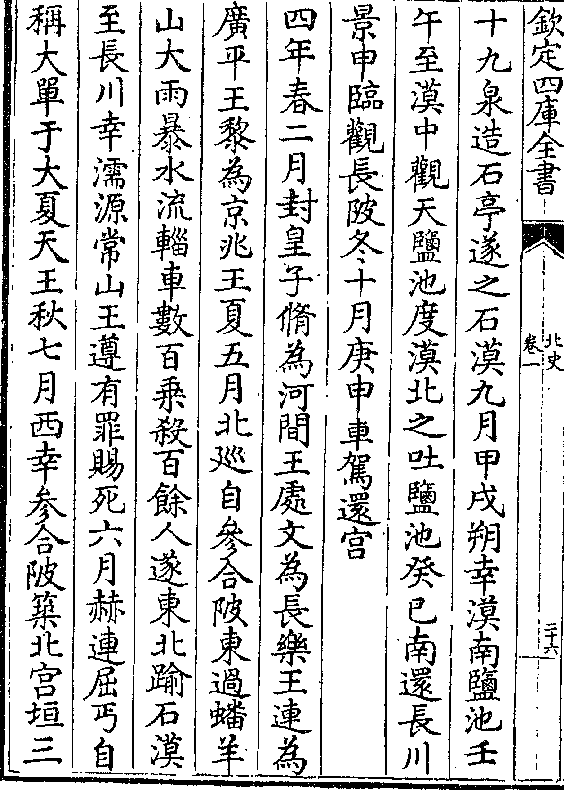 欽定四庫全書
北史
卷一
二十六
十九泉造石亭遂之石漠九月甲戌朔幸漠南鹽池壬
午至漠中觀天鹽池度漠北之吐鹽池癸巳南還長川
景申臨觀長陂冬十月庚申車駕還宫
四年春二月封皇子脩為河間王處文為長樂王連為
廣平王黎為京兆王夏五月北巡自參合陂東過蟠羊
山大雨暴水流輜車數百乗殺百餘人遂東北踰石漠
至長川幸濡源常山王遵有罪賜死六月赫連屈丐自
稱大單于大夏天王秋七月西幸參合陂築北宫垣三